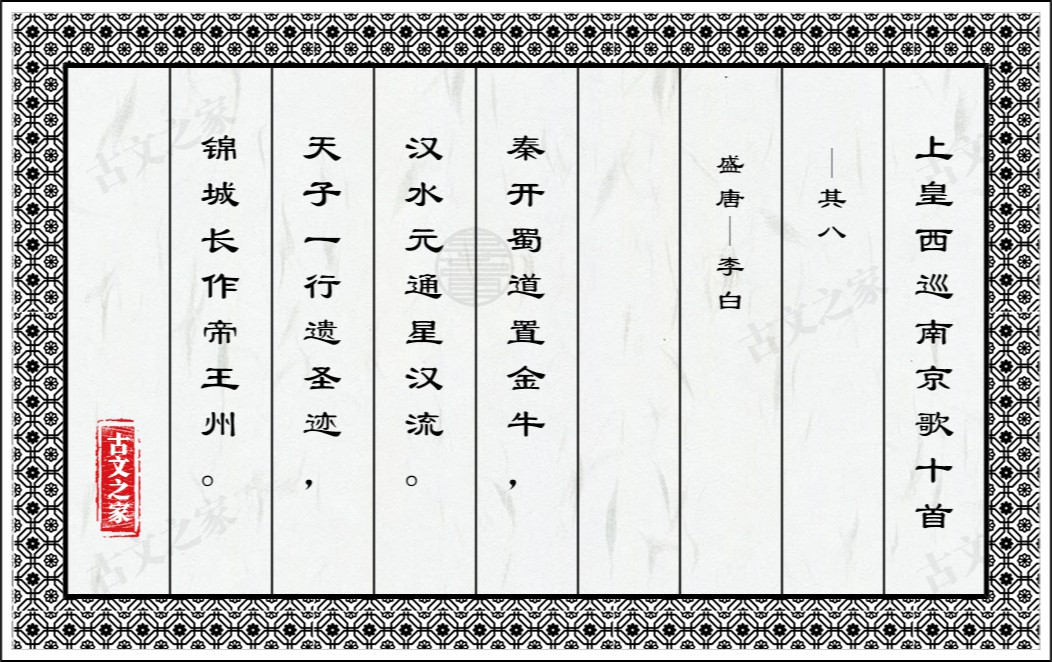 上皇西巡南京歌十首
—其八
盛唐—李白
秦开蜀道置金牛，
汉水元通星汉流。
天子一行遗圣迹，
锦城长作帝王州。
古文之家
古文之家
古文之家
古文之家